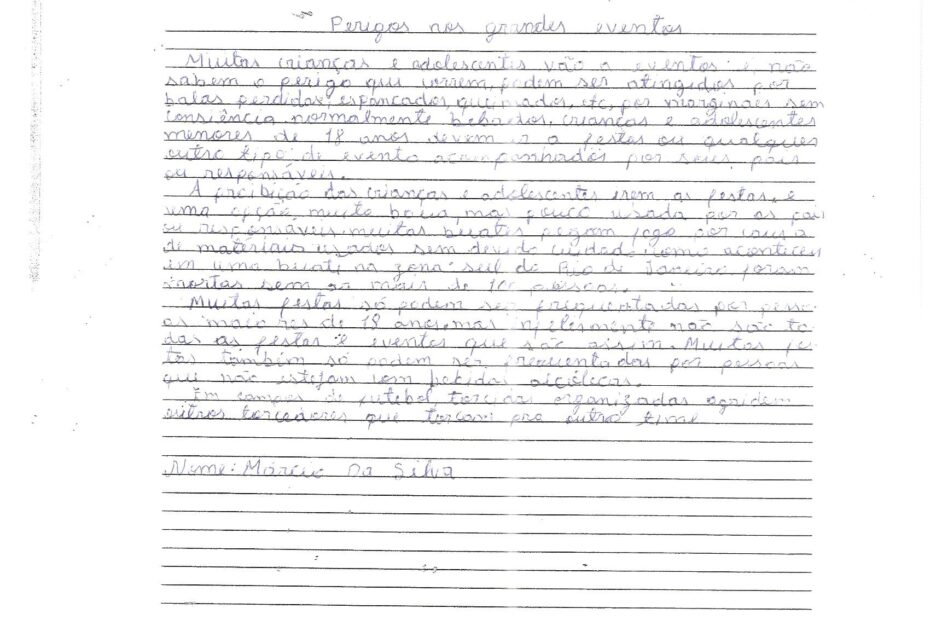 Perigos nos grandes eventos
Muitas crianças e adolescentes vão a eventos e não
sabem o perigo que correm, podem ser atingidos por
balas perdidas, espancados, queimados, etc, por marginais sem
consiência normalmente bebados, crianças e adolescentes
menores de 18 anos devem ir a festas ou qualques
outro tipo de evento acompanhados por seus pais
ou responsáveis.
A proibição das crianças e adolescentes irem as festas, e
uma opção muito boua, mas pouco usada por os pais
ou responsáveis muitas boates pegam fogo por causa
de matériais usados sem devido cuidado, como aconteceu
em uma boate na zona sul do Rio de Janeiro foram
mortas sem as mais de 100 pessoas.
Muitas festas só podem ser frequentadas por pesso-
as maiores de 18 anos, mas infelismente não são to-
das as festas e eventos que são assim. Muitas fes-
tas também só podem ser frequentadas por pessoas
que não estejam com bebidas alcólicas.
Em campos de futebol, torcidas organizadas agridem
outros torcedores que torcam pra outro time
Nome: Márcio Da Silva